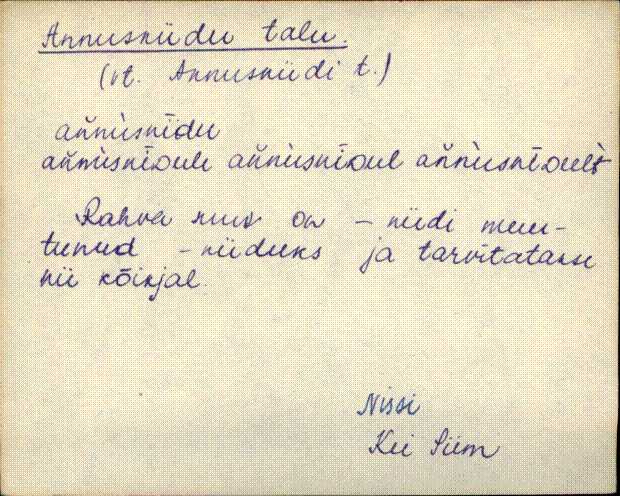 Annusniidu talu.
(vt. Annusniidi t.)
ańnusnīdu
ańnusnīdule ańnusnīdul ańnusnīdult
Rahva suus on – niidi muu-
tunud – niiduks ja tarvitatakse
nii kõikjal.
Nissi
Kei Siim